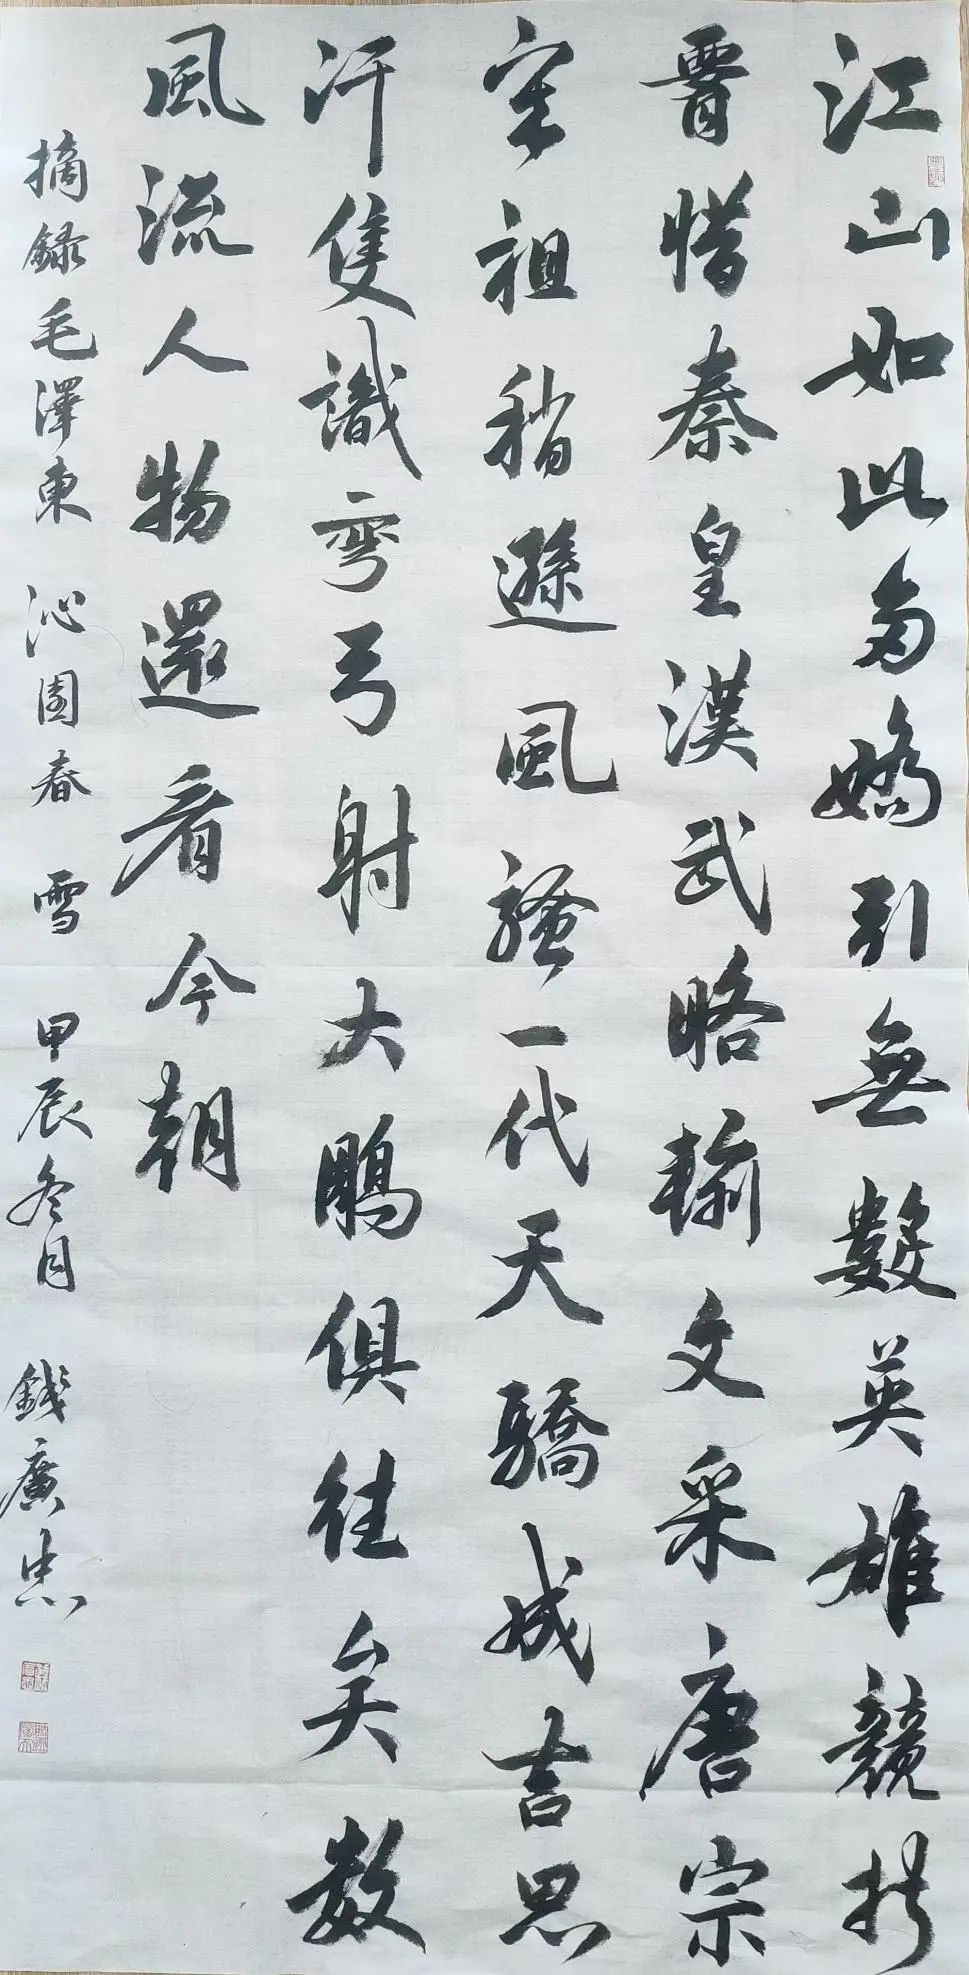 江山如此多嬌引無數英雄競折
腰惜秦皇漢武略輸文采唐宗
宋祖稍遜風騷一代天驕成吉思
汗隻識彎弓射大鵰俱往矣數
風流人物還看今朝
摘錄毛澤東 沁園春 雪 甲辰冬月 錢廣忠